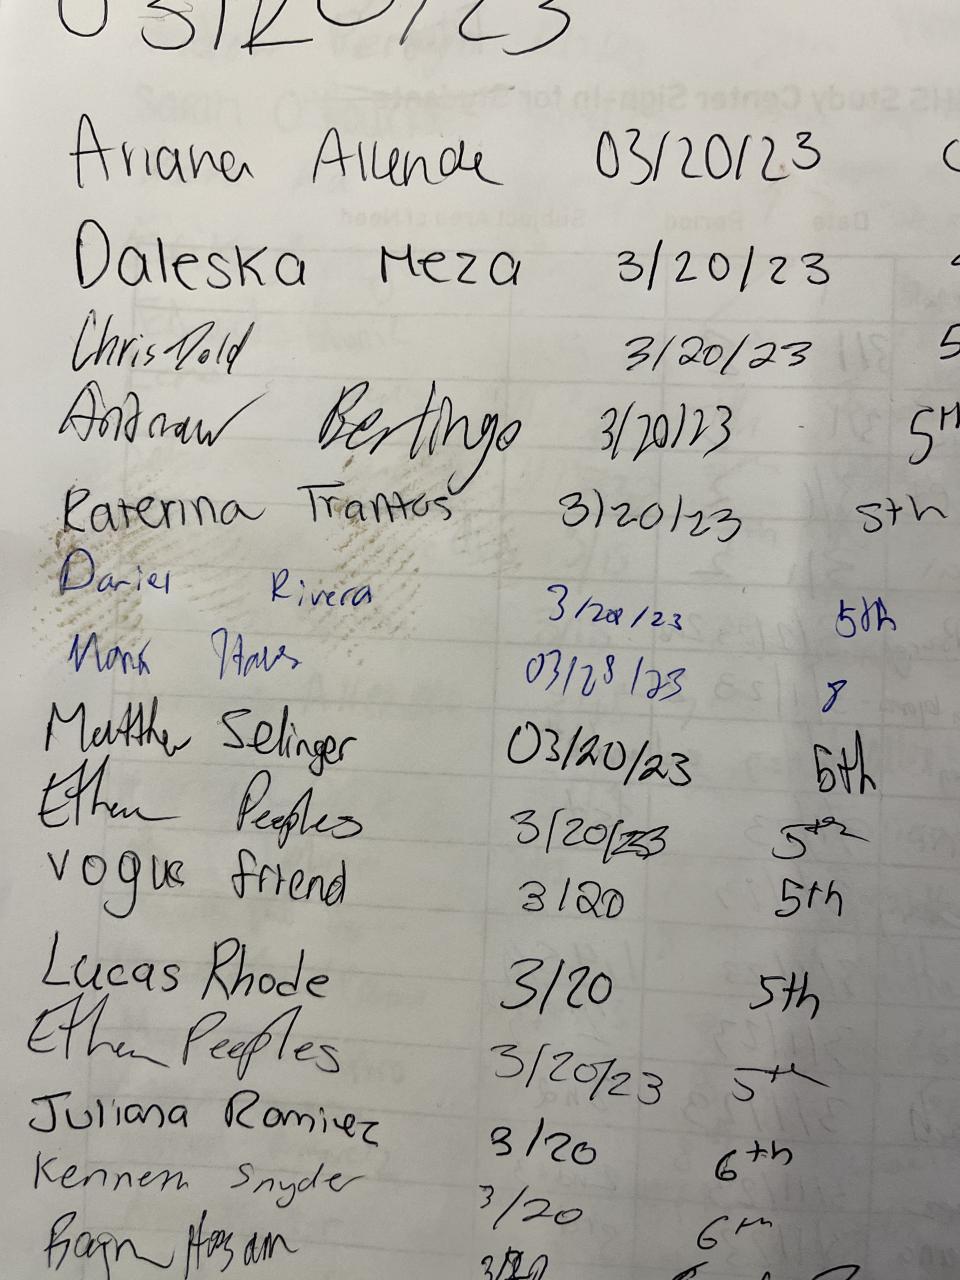 03/20/23
Ariana Allende 03/20/23
Daleska Meza 3/20/23
Chris Dold 3/20/23 5
Andraw Bertingo 3/20/23 5th
Katerina Trantos 3/20/23 5th
Daniel Rivera 3/20/23 5th
Mark 03/28/23 8
Matthew Selinger 03/20/23 6th
Ethan Peeples 3/20/23 5th
Vogue friend 3/20 5th
Lucas Rhode 3/20 5th
Ethan Peeples 3/20/23 5th
Juliana Ramirez 3/20 6th
Kenneth Snyder 3/20 6th
3/20